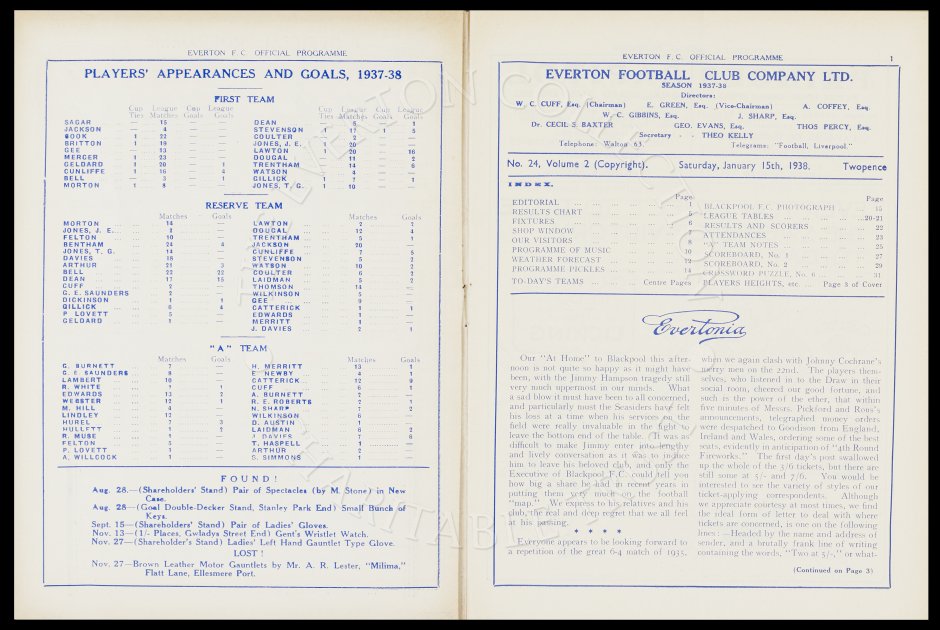 EVERTON F.C. OFFICIAL PROGRAMME
PLAYERS' APPEARANCES AND GOALS, 1937-38
FIRST TEAM
Cup Ties League Matches Cup Goals League Goals Cup Ties League Matches Cup Goals League Goals
SAGAR — 15 — — DEAN — 5 — 1
JACKSON — 4 — — STEVENSON 1 17 1 5
COOK 1 22 — — COULTER — 2 — —
BRITTON 1 19 — — JONES, J. E. 1 20 — —
GEE — 13 — — LAWTON 1 20 — 16
MERCER 1 23 — — DOUGAL — 11 — 2
GELDARD 1 20 — 1 TRENTHAM — 14 — 6
CUNLIFFE 1 16 — 4 WATSON — 4 — —
BELL — 3 — 1 GILLICK 1 7 — 1
MORTON 1 8 — — JONES, T. G. 1 10 — —
RESERVE TEAM
Matches Goals Matches Goals
MORTON 14 — LAWTON 2 2
JONES, J. E. 1 — DOUGAL 12 4
FELTON 10 — TRENTHAM 5 1
BENTHAM 24 4 JACKSON 20 —
JONES, T. G. 14 — CUNLIFFE 7 5
DAVIES 18 — STEVENSON 5 2
ARTHUR 21 3 WATSON 10 2
BELL 22 22 COULTER 6 2
DEAN 17 15 LAIDMAN 3 2
CUFF 2 — THOMSON 14 —
G. E. SAUNDERS 2 — WILKINSON 5 —
DICKINSON 1 1 GEE 9 —
GILLICK 6 4 CATTERICK 1 1
P LOVETT 5 — EDWARDS 1 —
GELDARD 1 — MERRITT 1 —
J. DAVIES 2 1
"A" TEAM
Matches Goals Matches Goals
G. BURNETT 7 — H. MERRITT 13 1
G. E. SAUNDERS 8 — E. NEWBY 4 1
LAMBERT 10 — CATTERICK 12 9
R. WHITE 7 1 CUFF 6 1
EDWARDS 13 2 A. BURNETT 2 —
WEBSTER 12 1 R. E. ROBERTS 2 1
M. HILL 4 — N. SHARP 7 2
LINDLEY 12 — WILKINSON 6 —
HUREL 7 3 D. AUSTIN 1 —
HULLETT 1 2 LAIDMAN 2 2
R. MUSE 1 — J. DAVIES 7 6
FELTON 5 — T. HASPELL 1 —
P. LOVETT 1 — ARTHUR 2 —
A. WILLCOCK 1 — S. SIMMONS 1 —
FOUND!
Aug. 28.—(Shareholders' Stand) Pair of Spectacles (by M. Stone) in New
Case.
Aug. 28—(Goal Double-Decker Stand, Stanley Park End) Small Bunch of
Keys.
Sept. 15—(Shareholders' Stand) Pair of Ladies' Gloves.
Nov. 13—(1/- Places, Gwladys Street End) Gent's Wristlet Watch.
Nov. 27—(Shareholder's Stand) Ladies' Left Hand Gauntlet Type Glove.
LOST!
Nov. 27—Brown Leather Motor Gauntlets by Mr. A. R. Lester, "Milima,"
Flatt Lane, Ellesmere Port.
EVERTON F.C. OFFICIAL PROGRAMME 1
EVERTON FOOTBALL CLUB COMPANY LTD.
SEASON 1937-38
Directors:
W. C. CUFF, Esq. (Chairman) E. GREEN, Esq. (Vice-Chairman) A. COFFEY, Esq.
W. C. GIBBINS, Esq. J. SHARP, Esq.
Dr. CECIL S. BAXTER GEO. EVANS, Esq. THOS PERCY, Esq.
Secretary - - THEO KELLY
Telephone: Walton 63. Telegrams: "Football, Liverpool."
No. 24, Volume 2 (Copyright). Saturday, January 15th, 1938. Twopence
INDEX.
Page Page
EDITORIAL 1 BLACKPOOL F.C. PHOTOGRAPH 15
RESULTS CHART 5 LEAGUE TABLES 20-21
FIXTURES 6 RESULTS AND SCORERS 22
SHOP WINDOW 7 ATTENDANCES 23
OUR VISITORS 8 "A" TEAM NOTES 25
PROGRAMME OF MUSIC 10 SCOREBOARD, No. 1 27
WEATHER FORECAST 12 SCOREBOARD, No. 2 29
PROGRAMME PICKLES 14 CROSSWORD PUZZLE, No. 6 31
TO-DAY'S TEAMS Centre Pages PLAYERS HEIGHTS, etc. Page 3 of Cover
Evertonia
Our "At Home" to Blackpool this after-
noon is not quite so happy as it might have
been, with the Jimmy Hampson tragedy still
very much uppermost in our minds. What
a sad blow it must have been to all concerned,
and particularly must the Seasiders have felt
his loss at a time when his services on the
field were really invaluable in the fight to
leave the bottom end of the table. It was as
difficult to make Jimmy enter into lengthy
and lively conversation as it was to induce
him to leave his beloved club, and only the
Executive of Blackpool F.C. could tell you
how big a share he had in recent years in
putting them very much on the football
"map." We express to his relatives and his
club, the real and deep regret that we all feel
at his passing.
* * * *
Everyone appears to be looking forward to
a repetition of the great 6-4 match of 1935,
when we again clash with Johnny Cochrane's
merry men on the 22nd. The players them-
selves, who listened in to the Draw in their
social room, cheered our good fortune, and
such is the power of the ether, that within
five minutes of Messrs. Pickford and Rous's
announcements, telegraphed money orders
were despatched to Goodison from England,
Ireland and Wales, ordering some of the best
seats, evidently in anticipation of "4th Round
Fireworks." The first day's post swallowed
up the whole of the 3/6 tickets, but there are
still some at 5/- and 7/6. You would be
interested to see the variety of styles of our
ticket-applying correspondents. Although
we appreciate courtesy at most times, we find
the ideal form of letter to deal with where
tickets are concerned, is one on the following
lines:—Headed by the name and address of
sender, and a brutally frank line of writing
containing the words, "Two at 5/-," or what-
(Continued on Page 3)